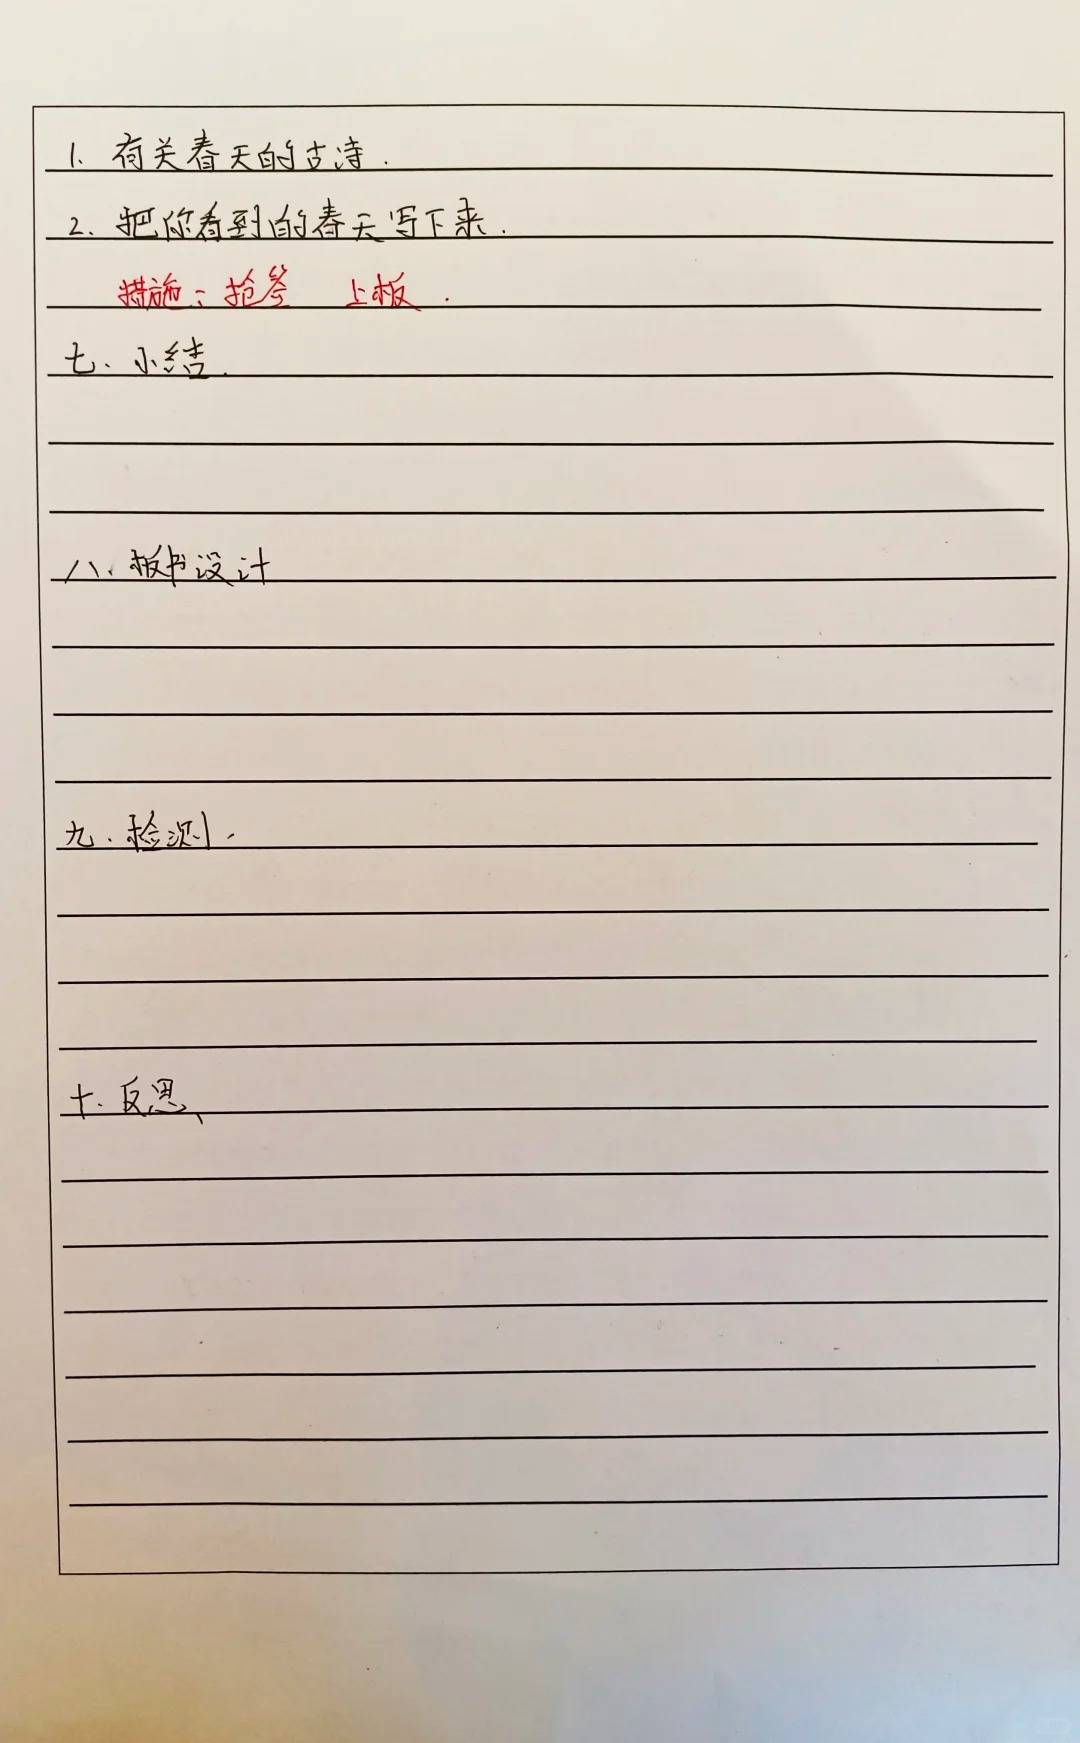 1. 有关春天的古诗.
2. 把你看到的春天写下来.
措施: 抢答 上板.
七、小结.
八、板书设计
九、检测.
十、反思、